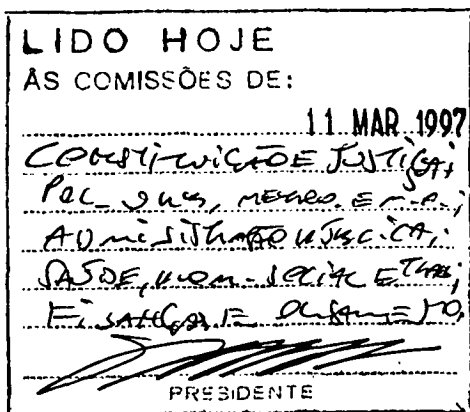 LIDO HOJE
ÀS COMISSÕES DE:
11 MAR 1997
CONSTITUIÇÃO E JUSTIÇA;
POL. URB, METRO. E M.A.;
ADMINISTRAÇÃO PÚBLICA;
SAÚDE, PROM. SOCIAL E TRAB;
FINANÇAS E ORÇAMENTO.
PRESIDENTE